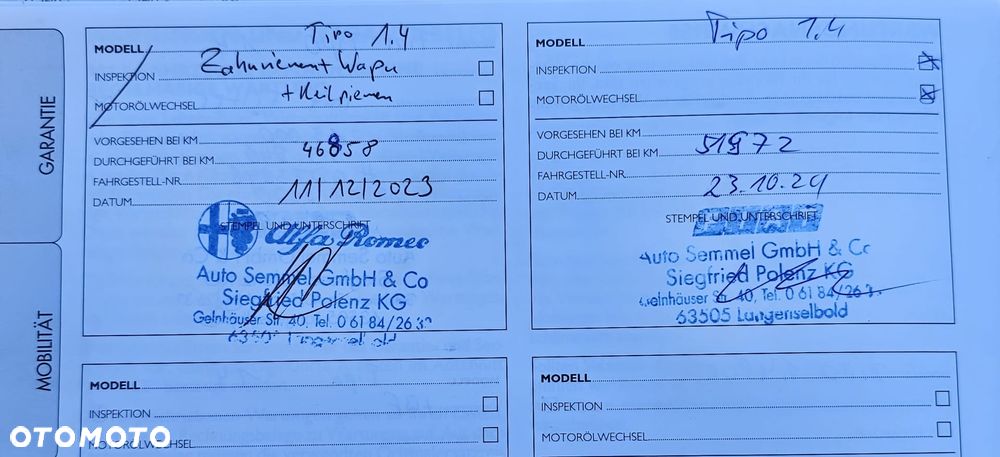 GARANTIE
MOBILITÄT
Tipo 1.4
MODELL
Zahnriemen + Wapu
INSPEKTION
+ Keilriemen
MOTORÖLWECHSEL
VORGESEHEN BEI KM
46858
DURCHGEFÜHRT BEI KM
FAHRGESTELL-NR.
11/12/2023
DATUM
STEMPEL UND UNTERSCHRIFT
Alfa Romeo
Auto Semmel GmbH & Co
Siegfried Polenz KG
Gelnhäuser Str. 40, Tel. 0 61 84/26
63505 Langenselbold
Tipo 1.4
MODELL
INSPEKTION
MOTORÖLWECHSEL
VORGESEHEN BEI KM
51972
DURCHGEFÜHRT BEI KM
FAHRGESTELL-NR.
23.10.24
DATUM
STEMPEL UND UNTERSCHRIFT
Auto Semmel GmbH & Co
Siegfried Polenz KG
Gelnhäuser Str. 40, Tel. 0 61 84/26
63505 Langenselbold
MODELL
INSPEKTION
MOTORÖLWECHSEL
MODELL
INSPEKTION
MOTORÖLWECHSEL
OTOMOTO